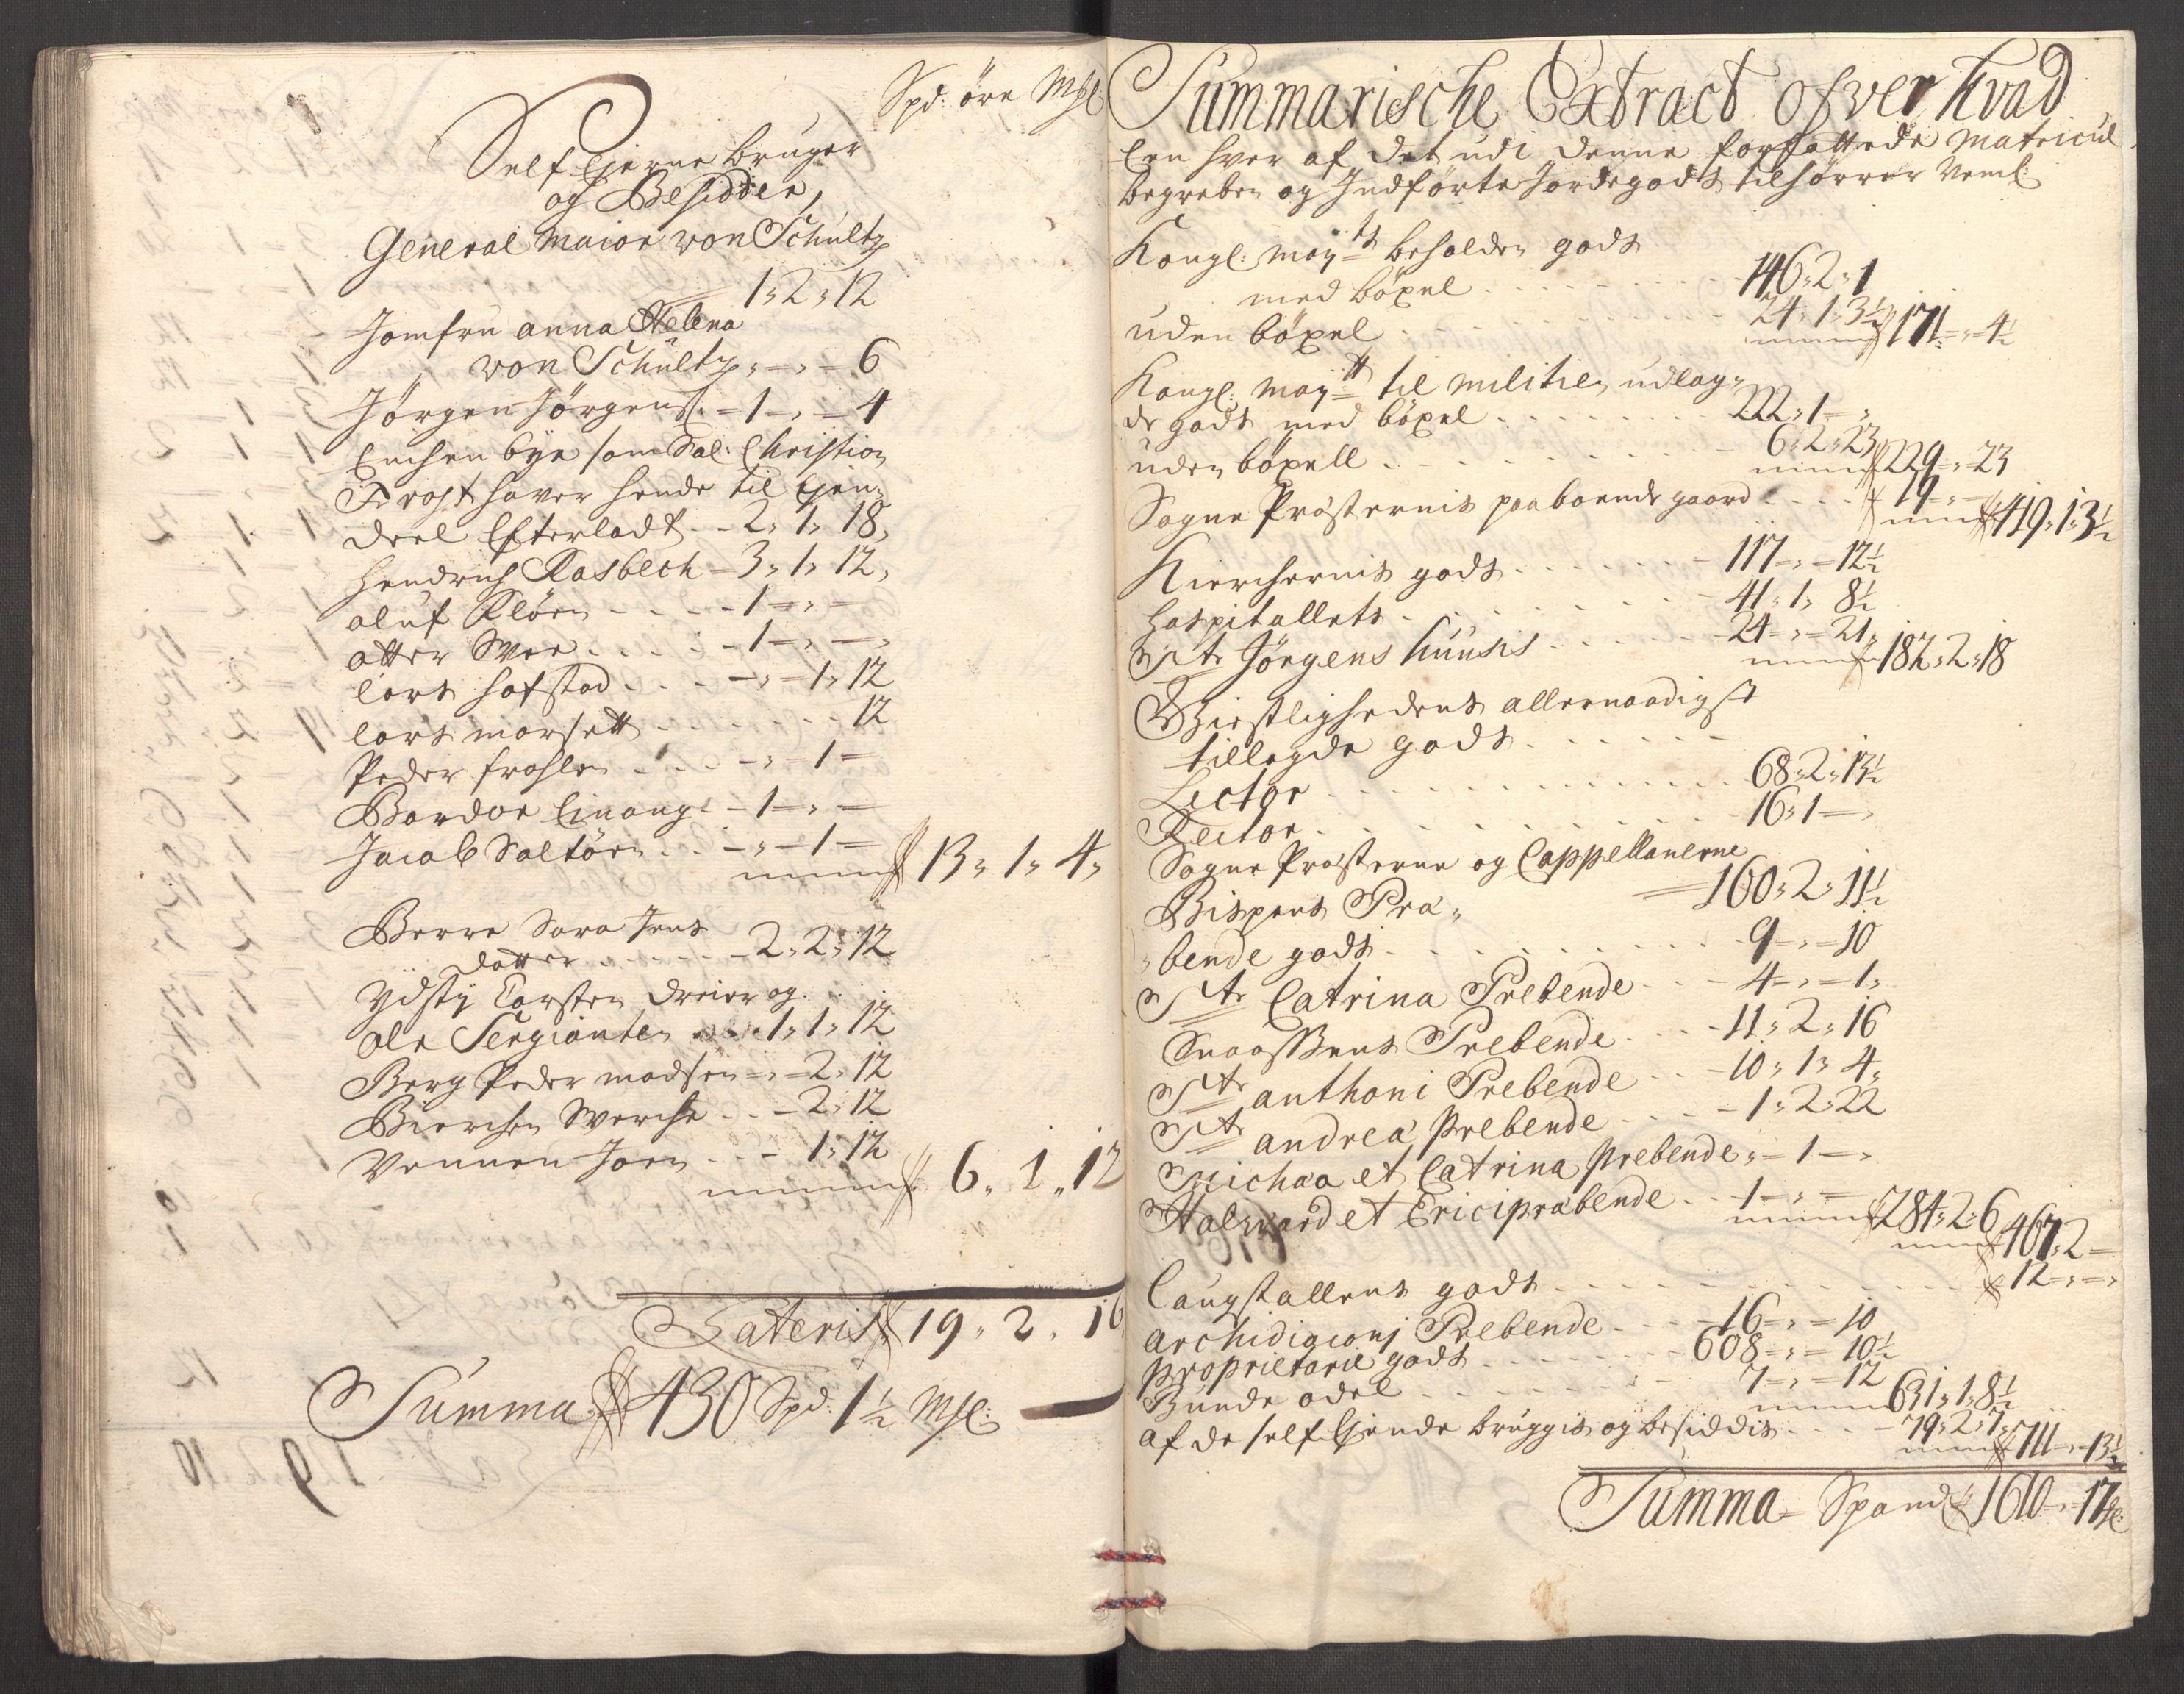 Spd: öre Mßl
Self Ejerne bruger
og Besidder,
General Maior von Schultz
1 " 2 " 12
Jomfru Anna Helena
von Schultz " - " - 6
Jörgen Jörgens: - 1 - " - 4
bye som Sal: Christian
Frost haver hende til Ejen
deel Efterladt - - 2 " 1 " 18 "
Hendrich Rasbech - 3 " 1 " 12 "
oluf Klöen - - - - 1 - " -
otter Moe . . . . - 1 - " - "
lars hofstad . . . - " - 1 " 12
lars morsett . . . . . . . 12
Peder frohlen . . . - " - 1 -
Bardoe Einang - 1 - " -
Jacob Saltöen . . - " - 1 -
13 " 1 " 4 "
Berre Sara Jens
datter . . . . . - 2 " 2 " 12
Ydsty Carsten dreier og
ole Sergianten . . . 1 " 1 " 12
Berg Peder madsen - " - 2 " 12
Bierchen . . - 2 " 12
Vennen Joen . . - 1 " 12
6 " 1 " 12
Lateris 19 " 2 " 16
Summa 430 Spd: 1½ Mßl:
Summarische Extract ofver hvad
Een hver af det udi denne forfattede Matricul
begreben og Indförte Jordegods tilhörrer Neml:
Kongl: May:ts beholden gods
med böxel . . . . . . . 146 " 2 " 1
uden böxel . . . . . . . 24 " 1 " 3½ 171 - " - 4½
Kongl: May:tt til militien udlag
de gods med böxel . . . . . . 222 " 1 - "
uden böxell . . . . . . . 6 " 2 " 23 229 - " - 23
Sogne Præsternis paaboende gaard . . . . 19 - " - 419 " 1 " 3½
Kierchernis gods . . . . . . 117 - " - 12½
Hospitallets . . . . . . . 41 " 1 " 8½
St: Jörgens Huusis . . . . 24 - " - 21 " 182 " 2 " 18
Giestlighedens allernaadigst
tillagde gods . . . . . .
Lector . . . . . . . . . 68 " 2 " 13½
Rector . . . . . . . . . 16 " 1 - "
Sogne Præsterne og Cappellanerne
160 " 2 " 11½
Bispens Præ "
" bende gods . . . . . . . 9 - " - 10
St: Catrina Prebende . . - 4 - " - 1 "
Snaassens Prebende . . - 11 " 2 " 16
St: anthoni Prebende . . - 10 " 1 " 4 "
St: andreæ Prebende . . . - 1 " 2 " 22
Michaa et Catrina Prebende " - 1 - "
Halvard et Erici præbende . . 1 - " - 284 " 2 " 6 467 " 2 -
Caugstallens gods . . . . . . . . 12 - " - "
Archidiaconj Prebende . . . - 16 - " - 10
Proprietarie gods . . . . . . 608 - " - 10½
Bunde odel . . . . . . . 7 - " - 12 631 " 1 " 8½
af de self Ejende bruggis og besiddis . . . - 79 " 2 " 7 " 711 - " - 13½
Summa Spand 1610 - " - 17 ßl: